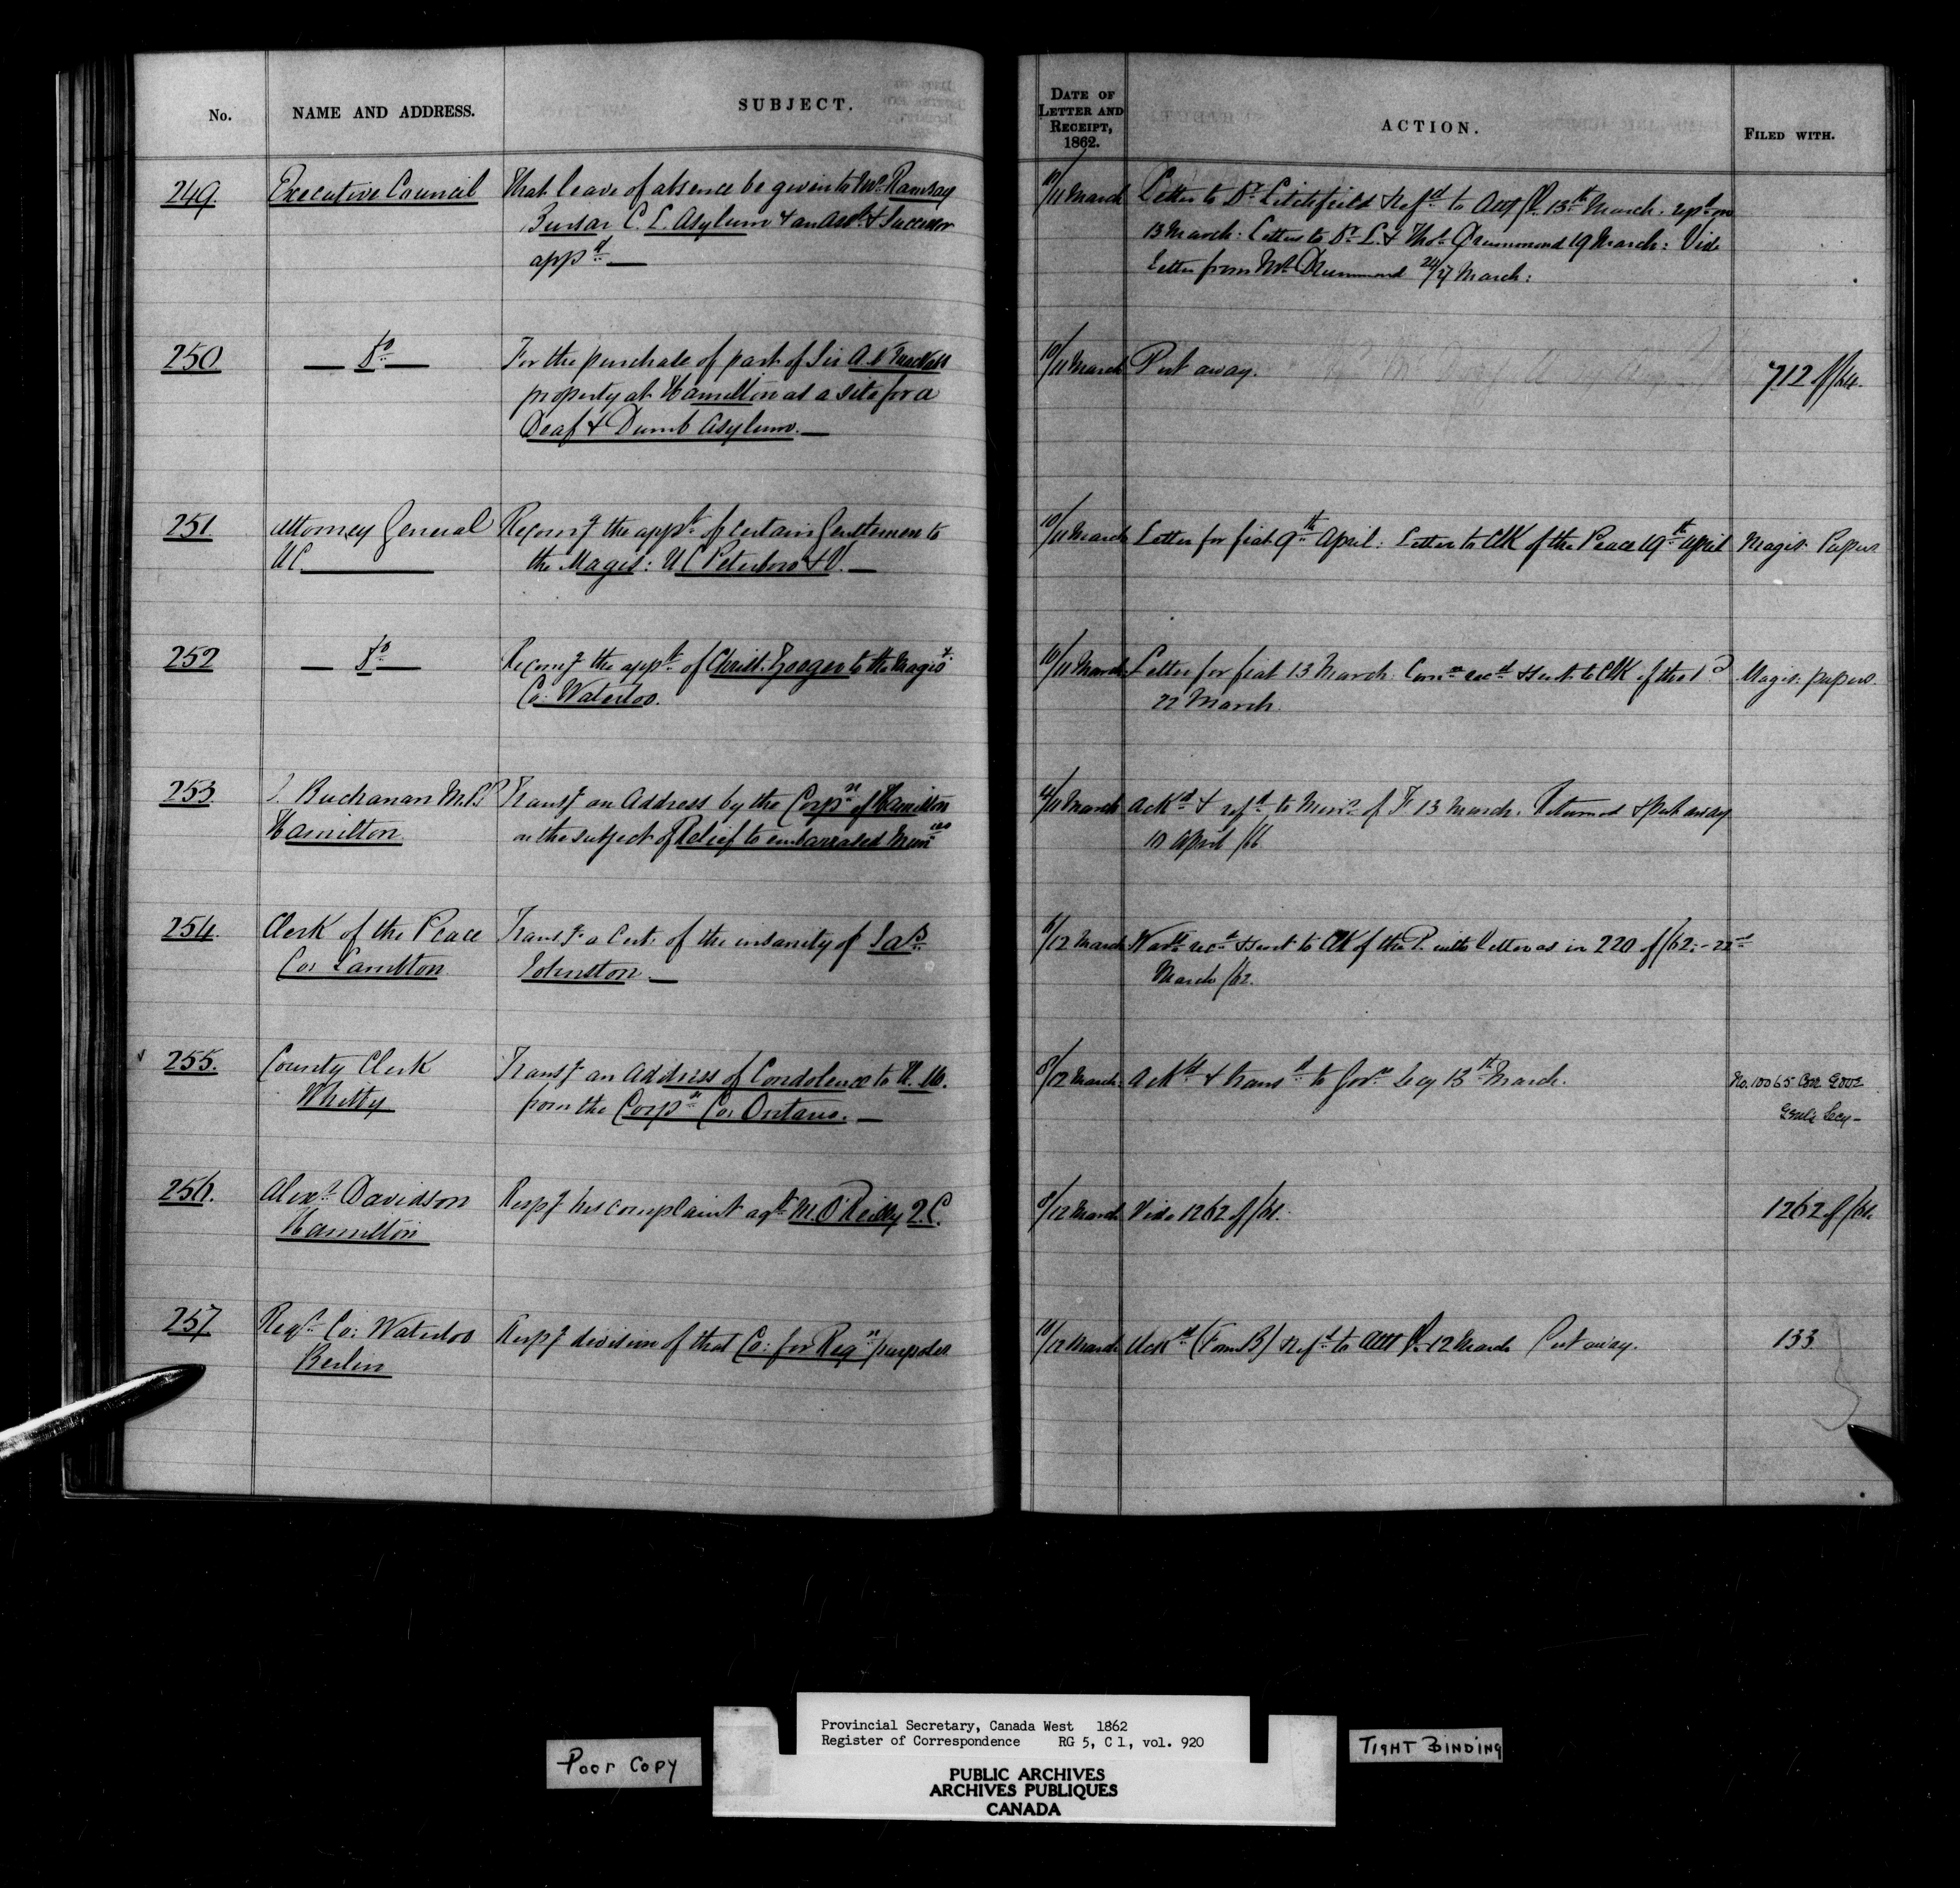 No. NAME AND ADDRESS. SUBJECT. DATE OF LETTER AND RECEIPT, 1862. ACTION. FILED WITH.
249. Executive Council That leave of absence be given to Mr. Ramsay
Bursar C. L. Asylum & an Asst. & Successor
appd.
11 March Letter to Dr. Litchfield & Refd. to Audr. 13th March. on
13 March: Letters to Dr. L. & Thos. Drummond 19 March: Vide
Letter from Mr. Drummond 24/27 March:
250 — Do — For the purchase of part of Sir A. N. MacNab
property at Hamilton as a site for a
Deaf & Dumb Asylum. —
10/11 March Put away. 712 of/64.
251 Attorney General Recomg the appt. of certain Gentlemen to
UC. the Magis: UC Peterboro & V. —
10/11 March Letter for fiat 9th April: Letter to Clk of the Peace 19th April Magis. Papers
252 — Do — Recomg the appt. of Christ. to the Magis.
Co: Waterloo.
10/11 March Letter for fiat 13 March. Comn. recd. & sent to Clk of the P.
22 March. Magis: papers.
253 I. Buchanan M.P.P. Transg an Address by the Corpn. of Hamilton
Hamilton on the subject of Relief to embarrassed Munies
11 March Ackd. & refd. to Minr. of F. 13 March. Returned & put away
10 April /66.
254. Clerk of the Peace Transg a Cert. of the insanity of Jas.
Co: Lambton Johnston —
6/12 March Wart. recd. & sent to Clk of the P. with letter as in 220 of/62. — 22nd
March /62.
255. County Clerk Transg an Address of Condolence to H. M.
Whitby from the Corpn. Co: Ontario. —
8/12 March Ackd. & transd. to Govr. Secy 13th March. No. 10065 Cor. Govr
Genl's Secy —
256. Alexr. Davidson Respg his complaint agt. M. O'Reilly Q.C.
Hamilton
8/12 March Vide 1262 of/61. 1262 of/61.
257 Regr. Co: Waterloo Respg division of that Co: for Regn. purposes
Berlin
11/12 March Ackd. (Form B) & refd. to Atty Gl. 12 March Put away. 133
Poor Copy
Provincial Secretary, Canada West 1862
Register of Correspondence RG 5, C 1, vol. 920
TIGHT BINDING
PUBLIC ARCHIVES
ARCHIVES PUBLIQUES
CANADA